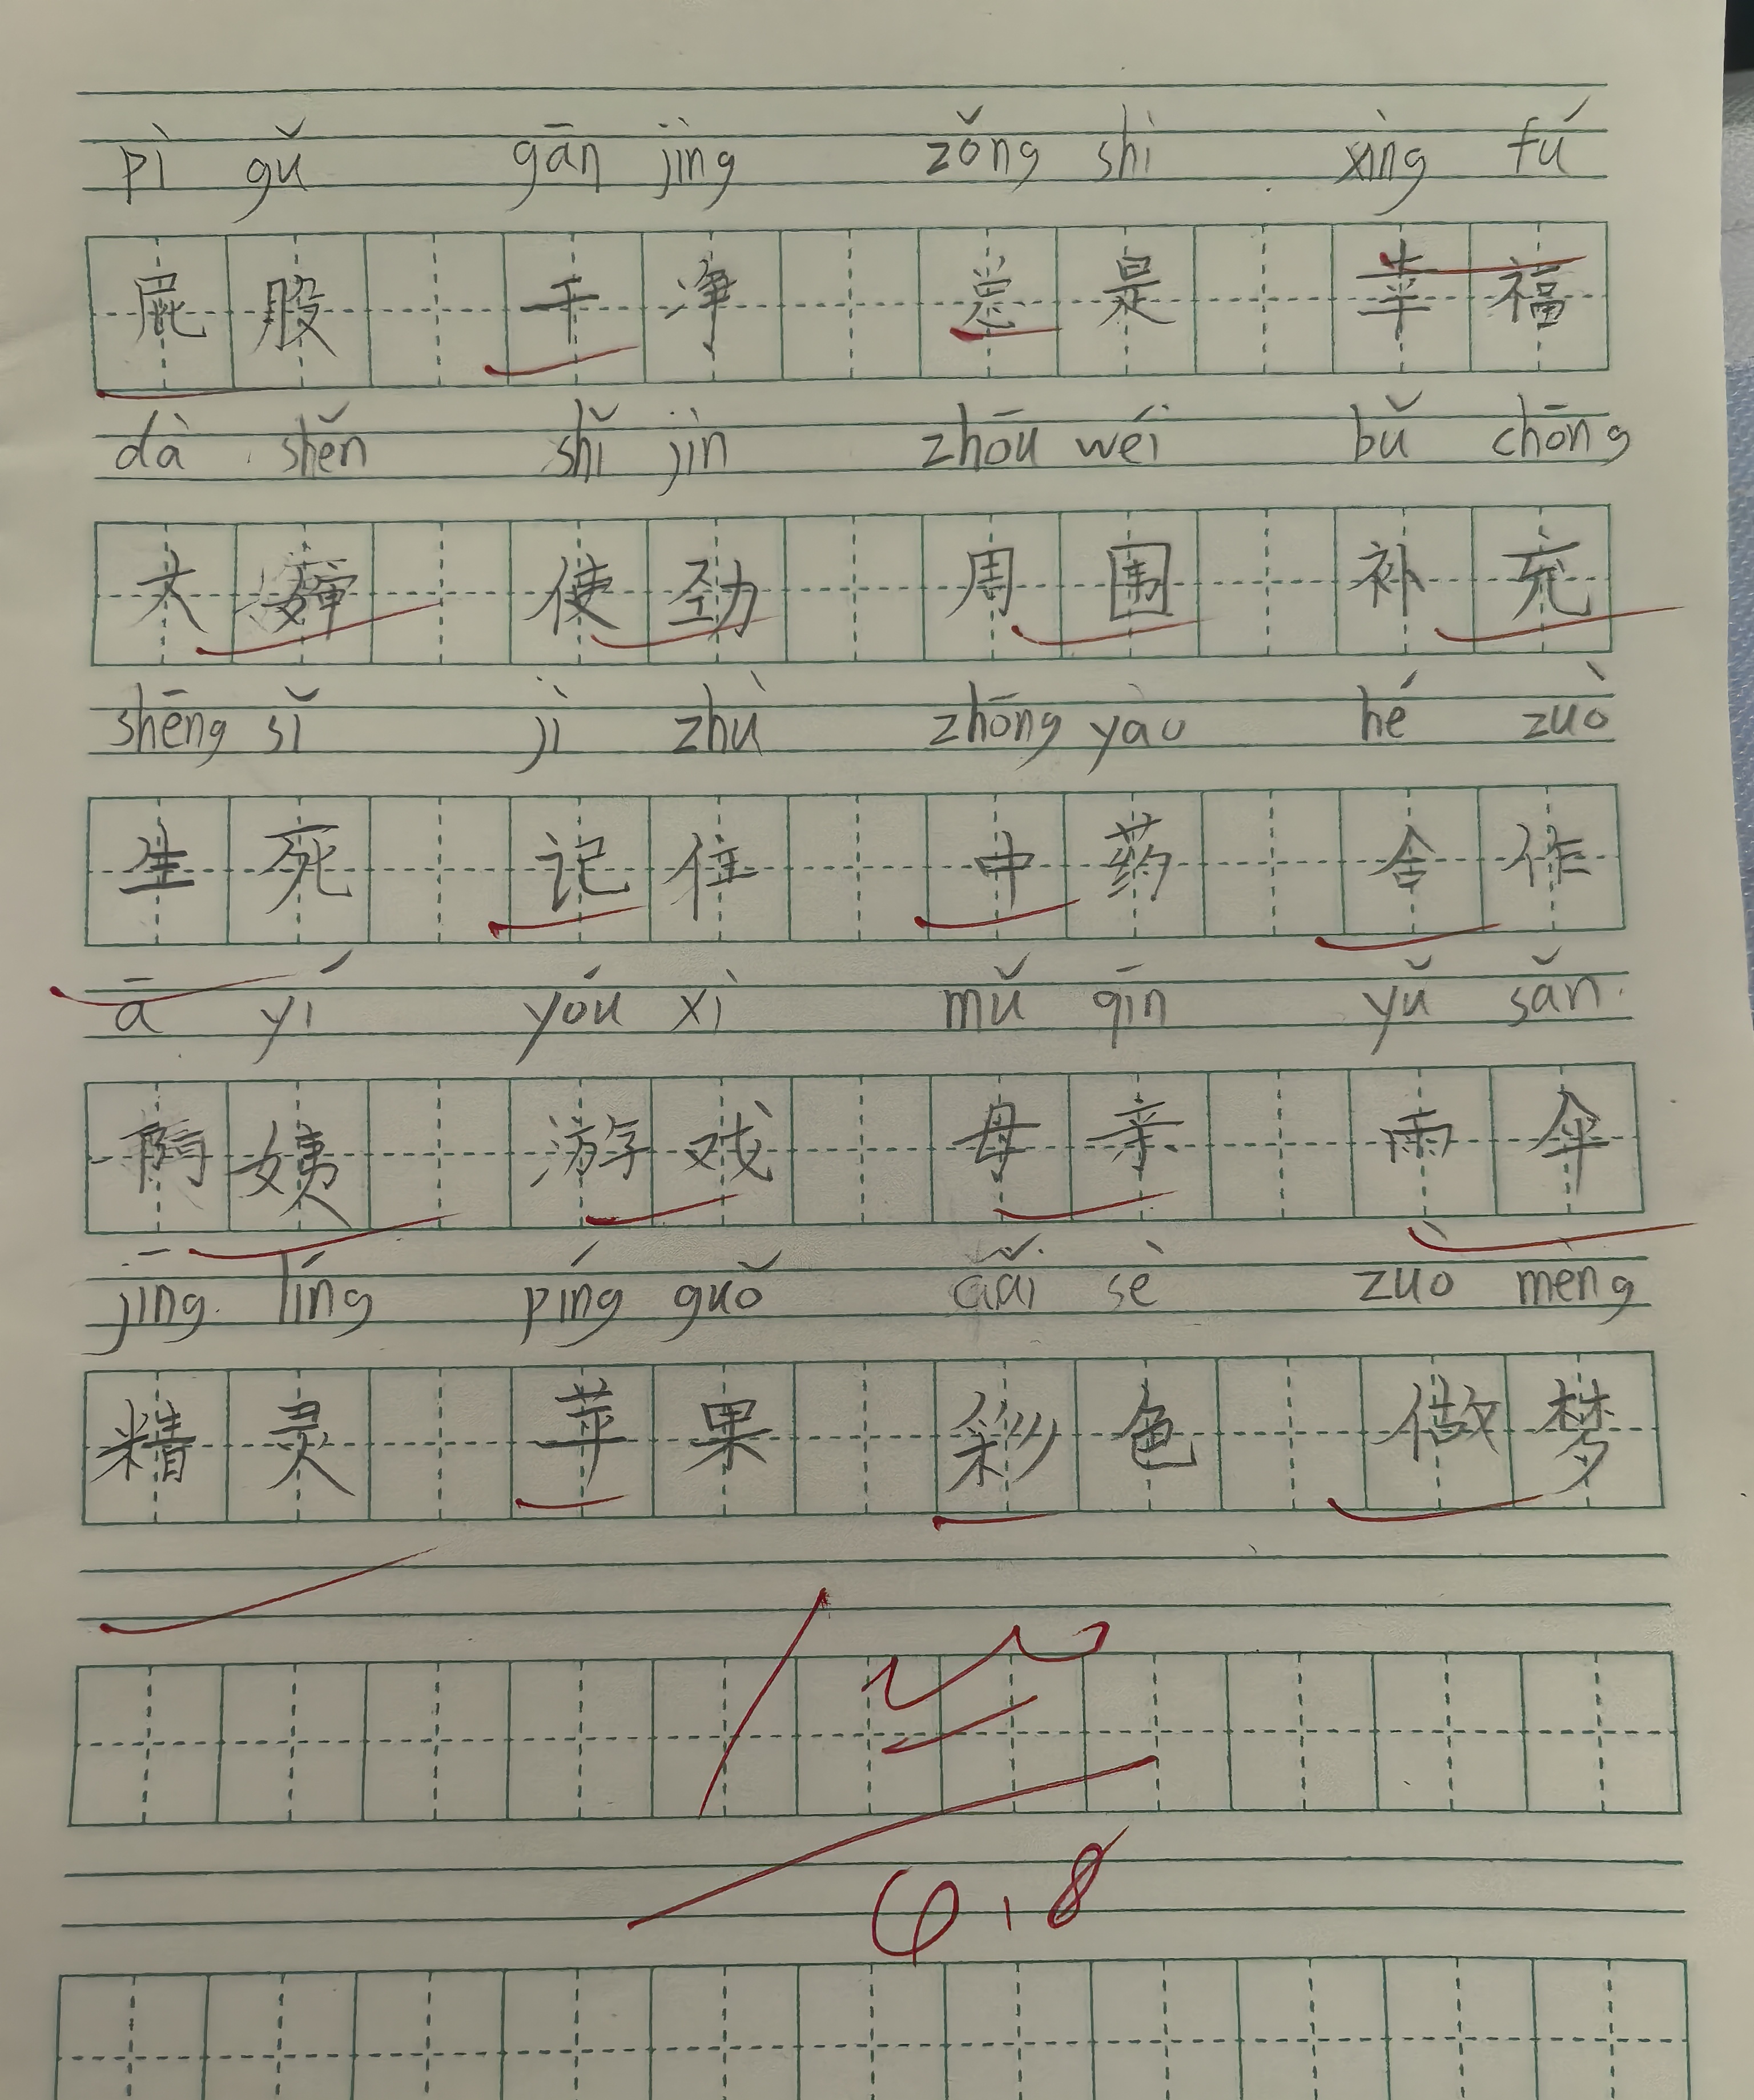 pì gǔ gān jìng zǒng shì xìng fú
屁股 干净 总是 幸福
dà shěn shǐ jìn zhōu wéi bǔ chōng
大婶 使劲 周围 补充
shēng sǐ jì zhù zhōng yào hé zuò
生死 记住 中药 合作
ā yí yóu xì mǔ qīn yǔ sǎn
阿姨 游戏 母亲 雨伞
jīng líng píng guǒ cǎi sè zuò mèng
精灵 苹果 彩色 做梦
6.8